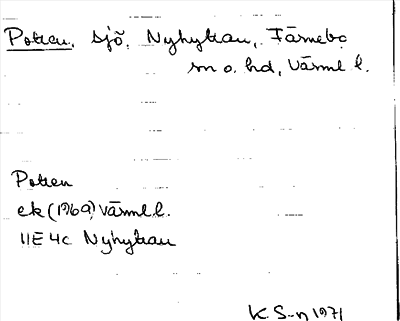 Potten, sjö, Nyhyttan, Färnebo
sn o. hd, Värml l.
Potten
ek (1969) Värml l.
11E 4c Nyhyttan
K. S-n 1971